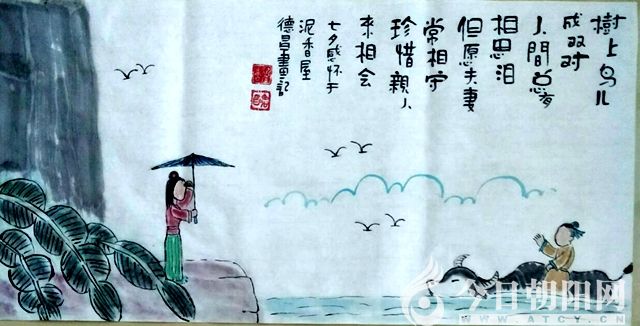 樹上鸟儿
成双对
人間总有
相思泪
但愿夫妻
常相守
珍惜親人
来相会
七夕感怀于
泥香屋
德昌畫記
今日朝阳网
WWW.ATCY.CN